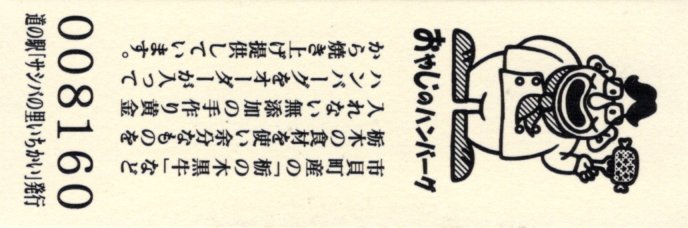 おやじのハンバーグ
市貝町産の「栃の木黒牛」など
栃木の食材を使い余分なものを
入れない無添加の手作り黄金
ハンバーグをオーダーが入って
から焼き上げ提供しています。
008160
道の駅「サシバの里いちかい」発行